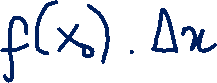 f(x₀) . Δx